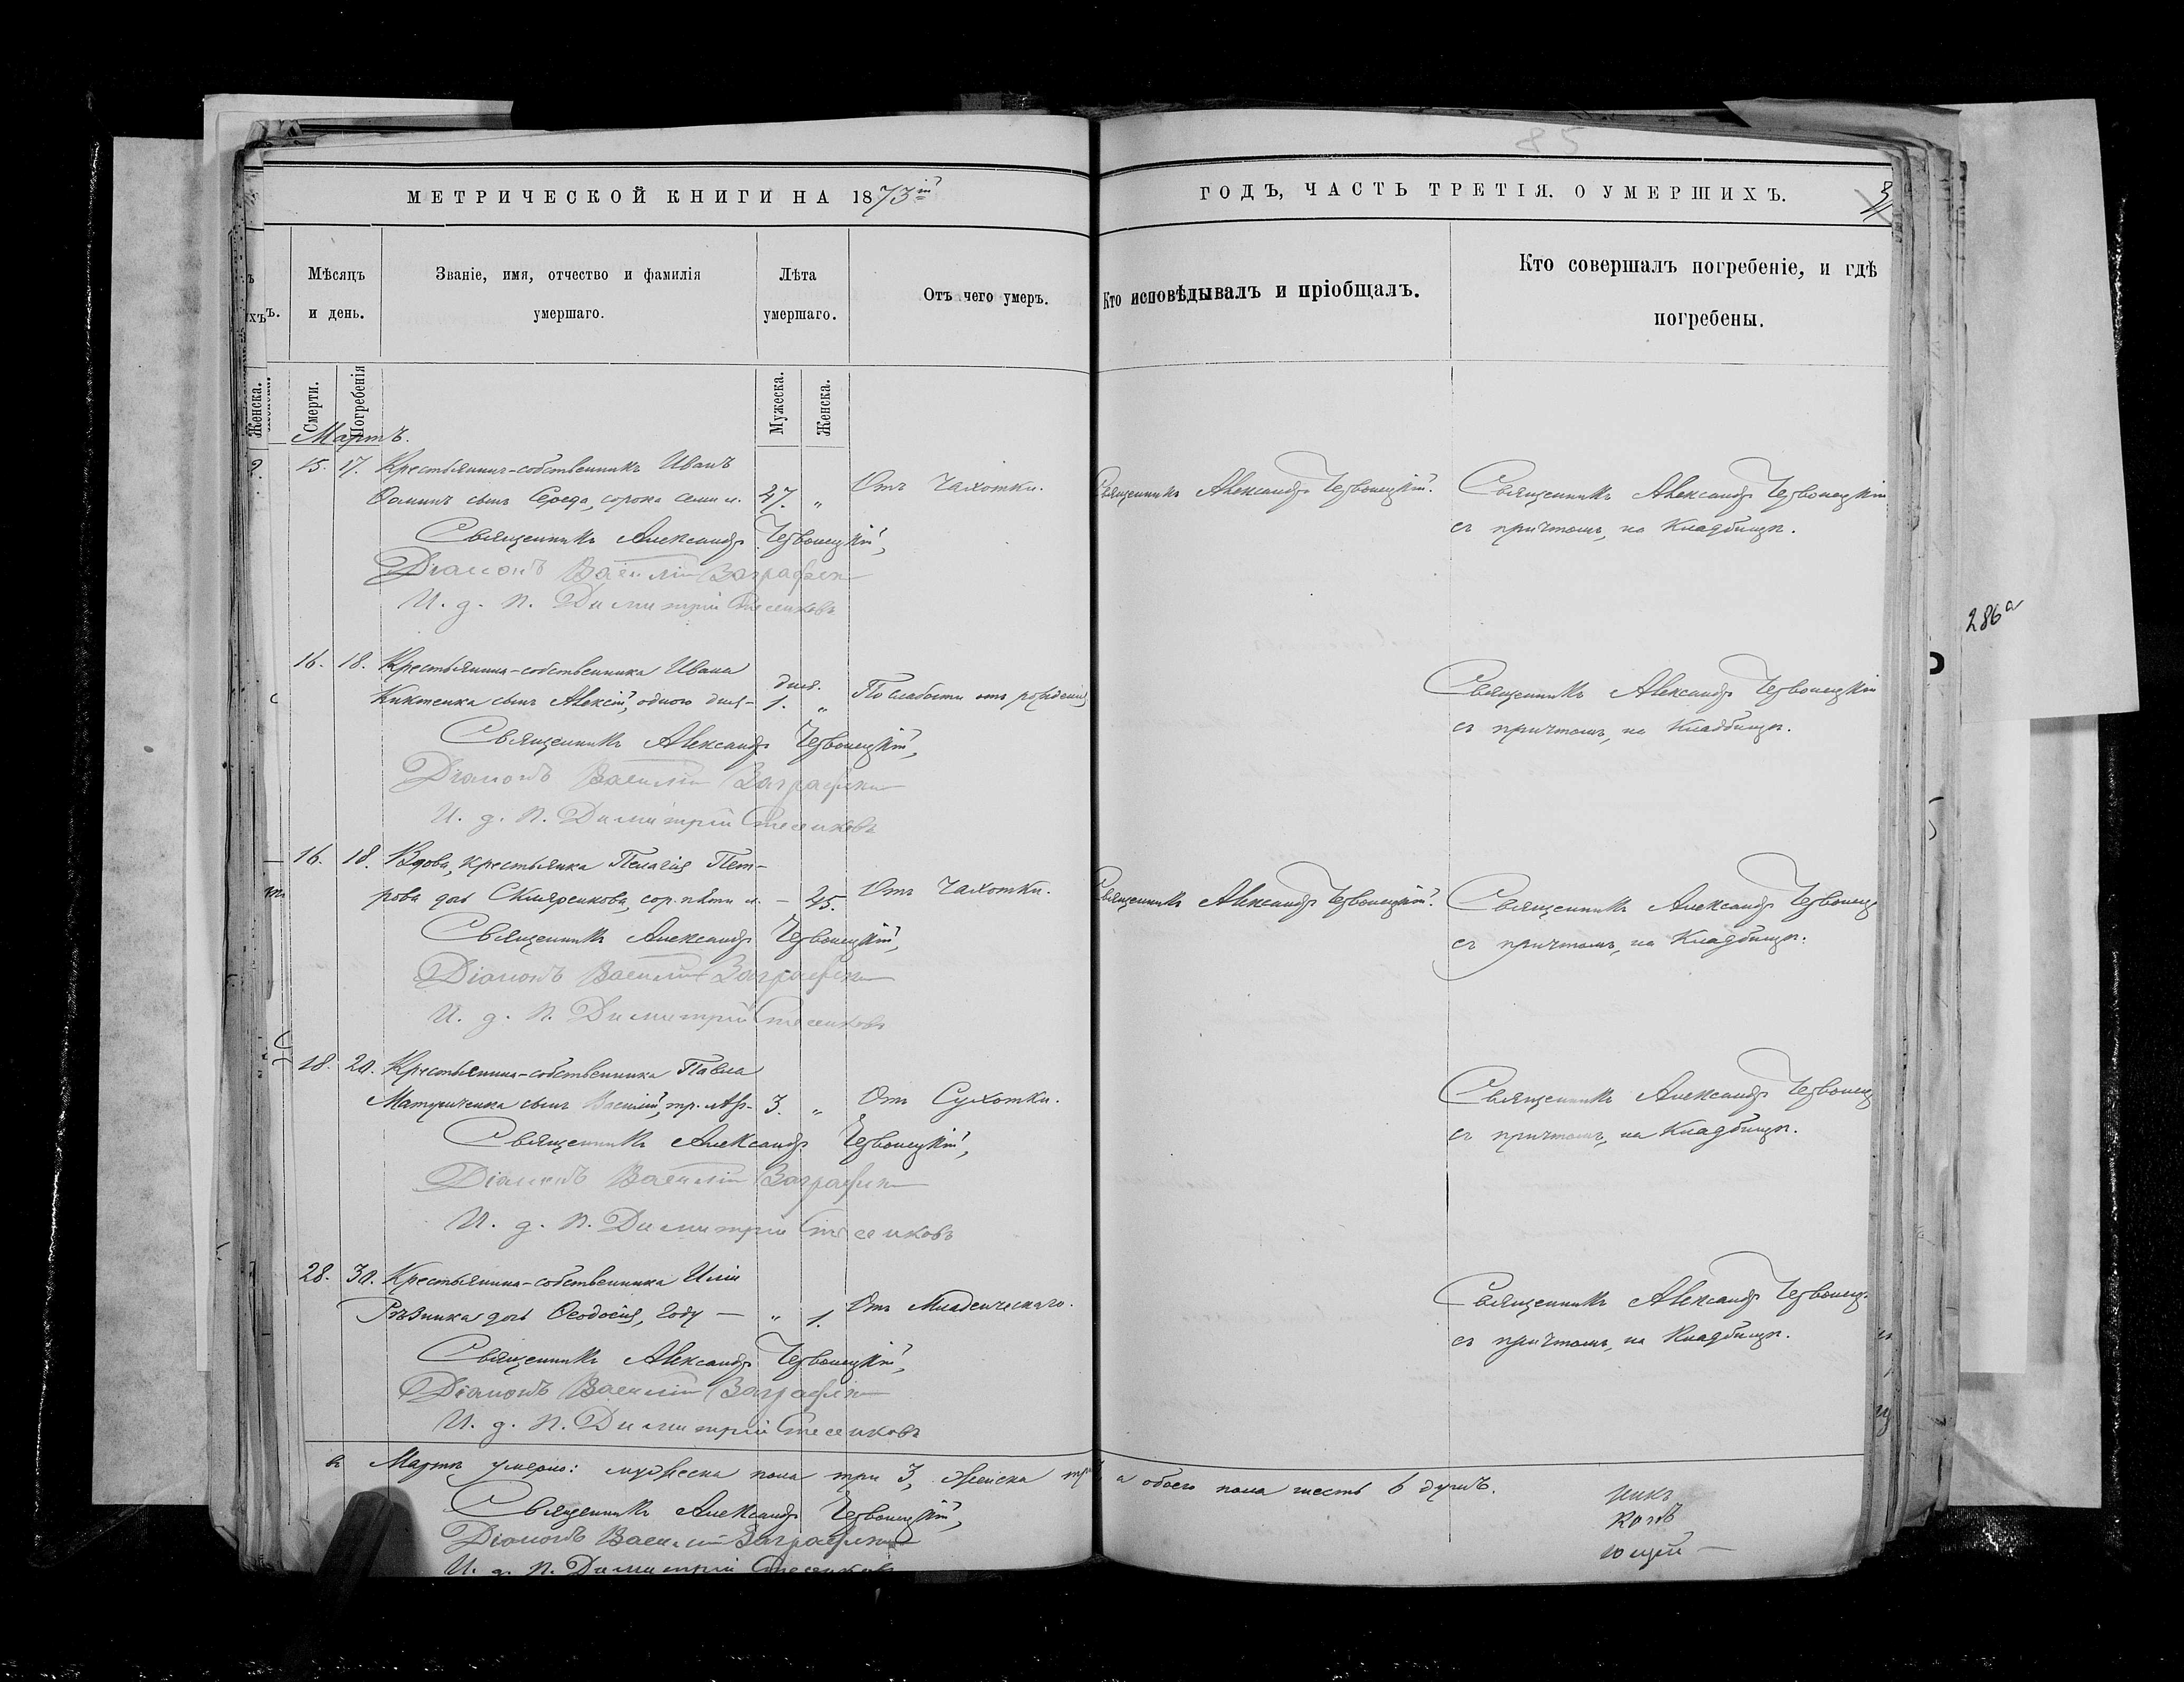 85
МЕТРИЧЕСКОЙ КНИГИ НА 1873й
ГОДЪ, ЧАСТЬ ТРЕТІЯ. О УМЕРШИХЪ.
Мѣсяцъ и день.
Званіе, имя, отчество и фамилія умершаго.
Лѣта умершаго.
Отъ чего умеръ.
Кто исповѣдывалъ и пріобщалъ.
Кто совершалъ погребеніе, и гдѣ погребены.
Женска.
Смерти.
Погребенія
Мужеска.
Женска.
Мартъ.
15. 17. Крестьянинъ-собственникъ Иванъ
Ѳоминъ сынъ Середа, сорока семи л. 47. „ Отъ Чахотки. Священникъ Александръ Червонецкій. Священникъ Александръ Червонецкій
съ причтомъ, на Кладбищѣ.
Священникъ Александръ Червонецкій,
Діаконъ Василій
И. д. п. Димитрій
16. 18. Крестьянина-собственника Ивана
Киктенка сынъ Алексій, одного дня – дня. 1. „ По слабости отъ рожденія Священникъ Александръ Червонецкій
съ причтомъ, на Кладбищѣ.
Священникъ Александръ Червонецкій,
Діаконъ Василій
И. д. п. Димитрій
16. 18. Вдова, крестьянка Пелагія Пет-
рова дочь Скляренкова, сор. пяти л. – 45. Отъ Чахотки. Священникъ Александръ Червонецкій. Священникъ Александръ Червонец
съ причтомъ, на Кладбищѣ.
Священникъ Александръ Червонецкій,
Діаконъ Василій
И. д. п. Димитрій
18. 20. Крестьянина-собственника Павла
сынъ Василій, тр. лѣтъ – 3. „ Отъ Сухотки. Священникъ Александръ Червонец
съ причтомъ, на Кладбищѣ.
Священникъ Александръ Червонецкій,
Діаконъ Василій
И. д. п. Димитрій
28. 30. Крестьянина-собственника Иліи
Рѣзника дочь Ѳеодосія, году — „ 1. Отъ Младенческаго. Священникъ Александръ Червонец
съ причтомъ, на Кладбищѣ.
Священникъ Александръ Червонецкій,
Діаконъ Василій
И. д. п. Димитрій
въ Мартѣ умерло: мужеска пола три 3, женска три а обоего пола шесть 6 душъ.
Священникъ Александръ Червонецкій,
Діаконъ Василій
И. д. п. Димитрій
286а